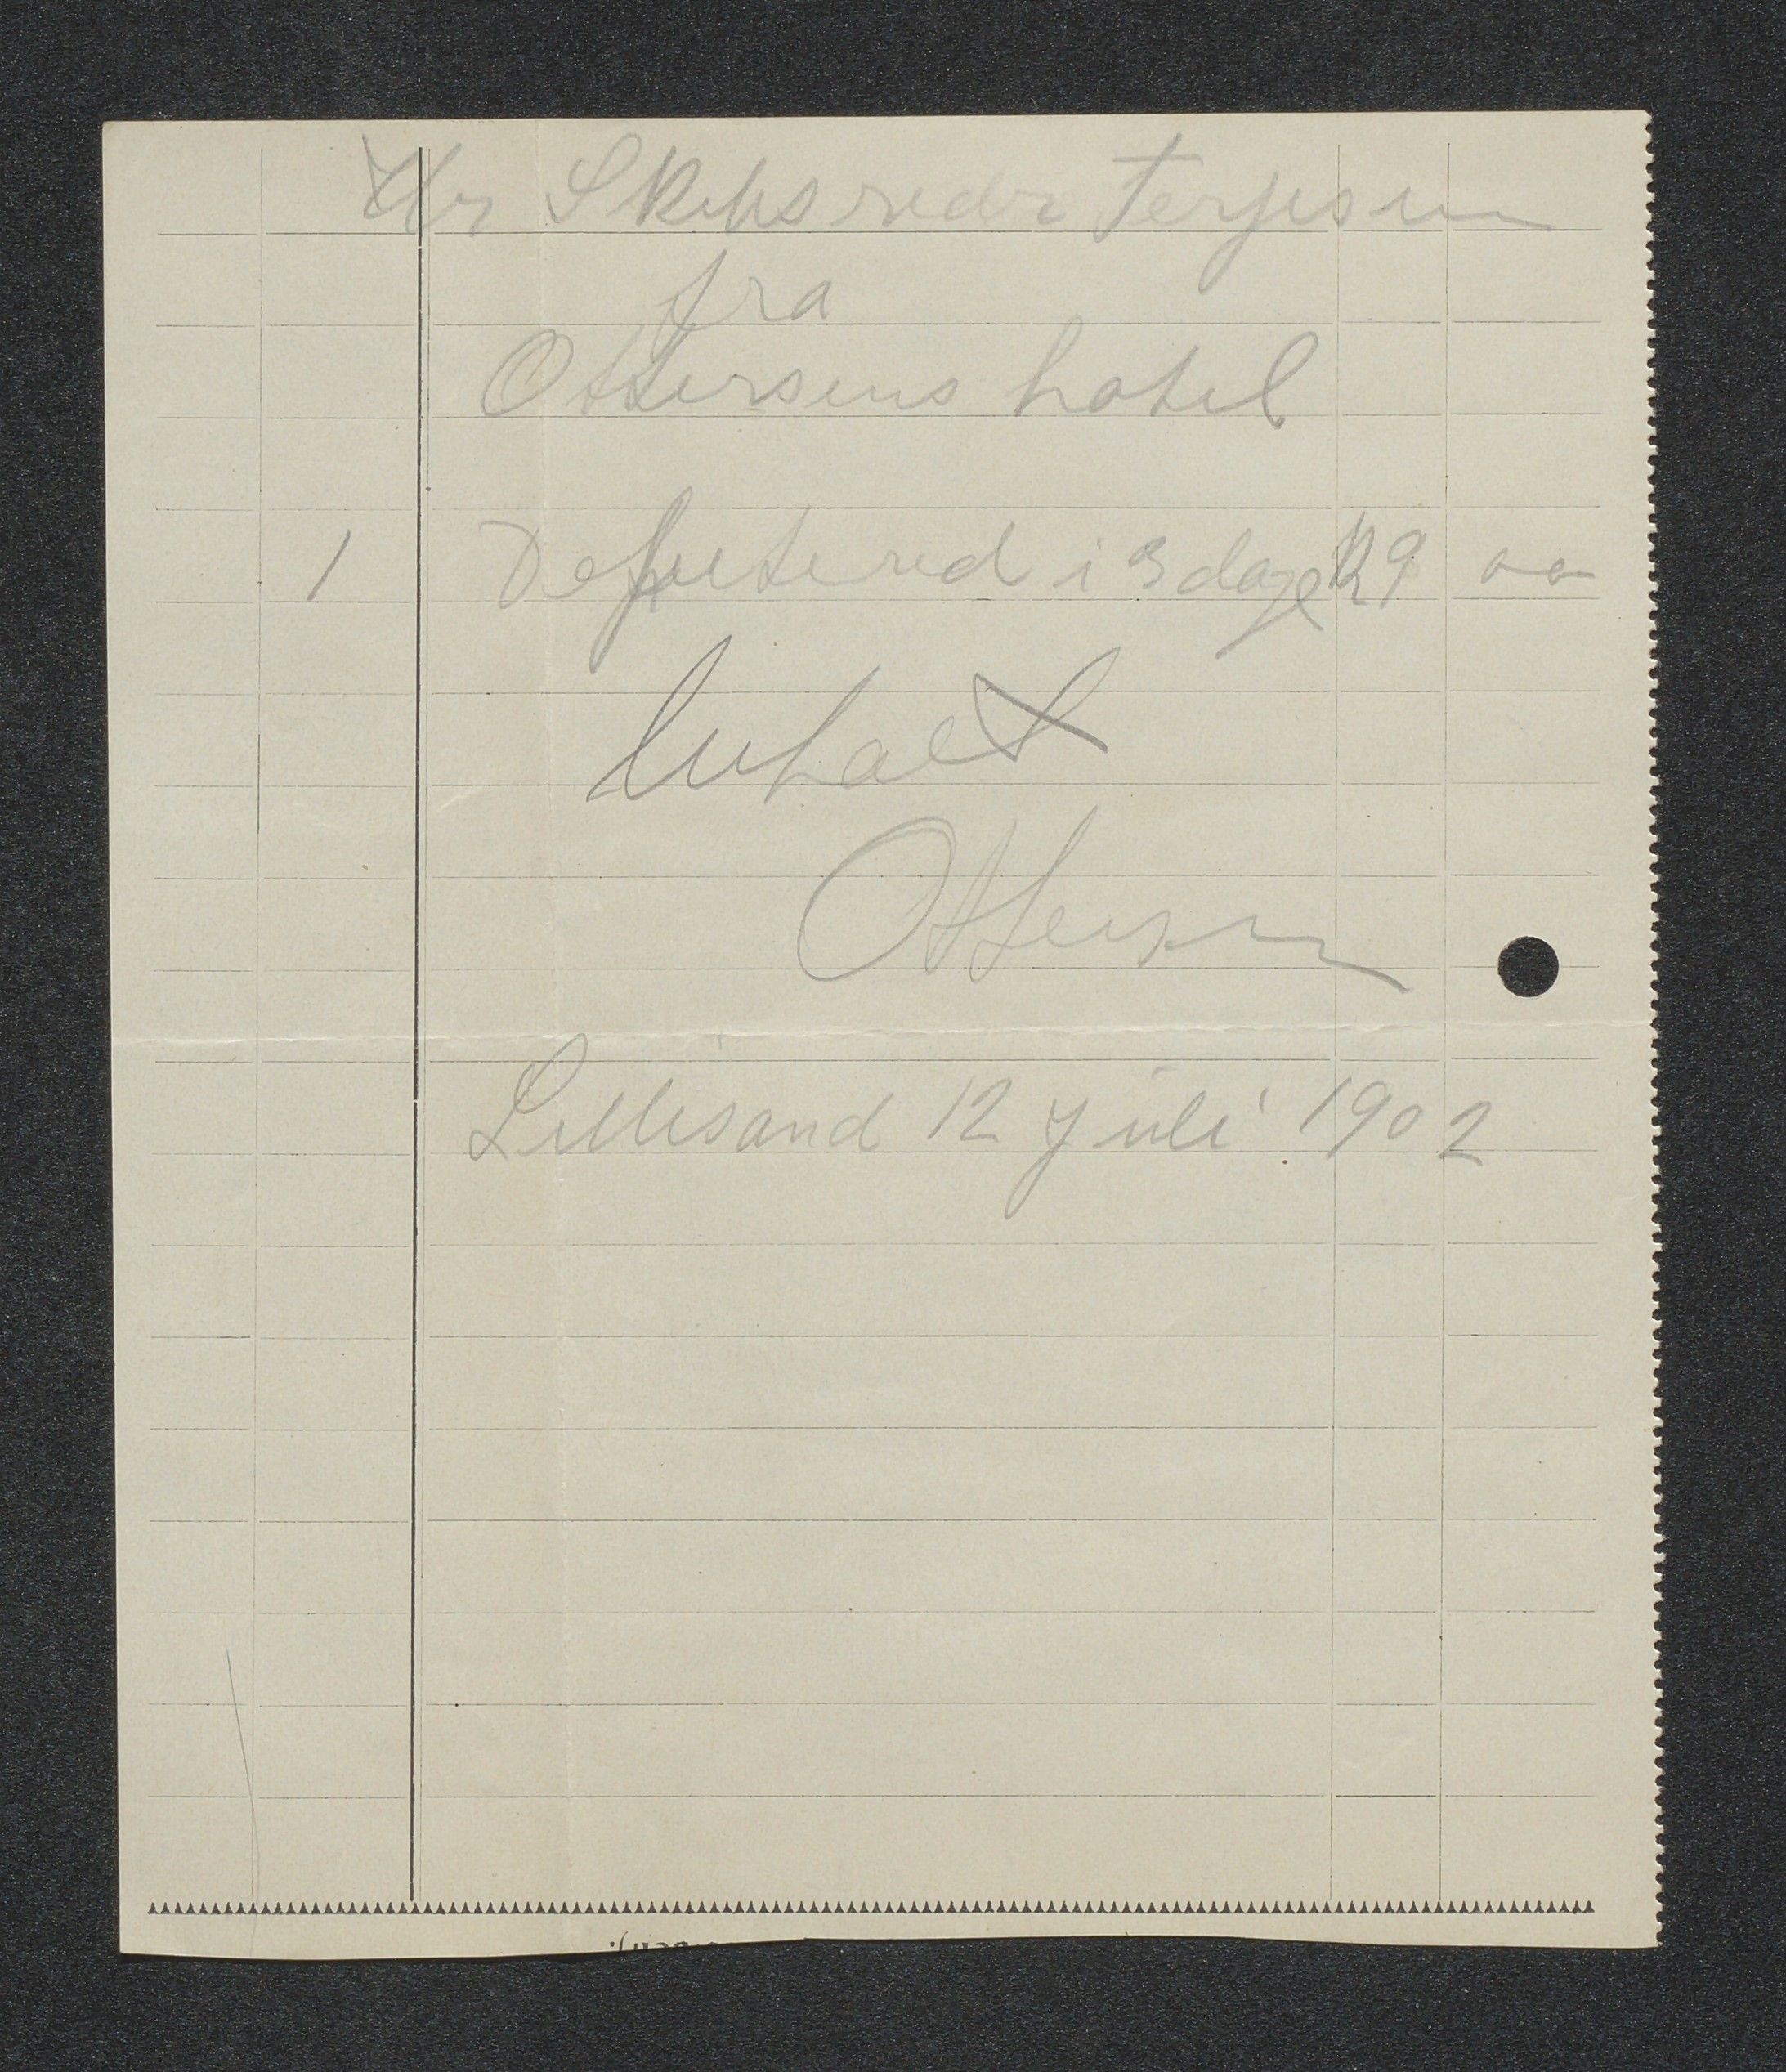 Hr Skibsreder Terjesen
fra
Ottersens hotel
1 Deputered i 3 dage Kr 9 00
Betalt
Ottersen
Lillesand 12 Juli 1902